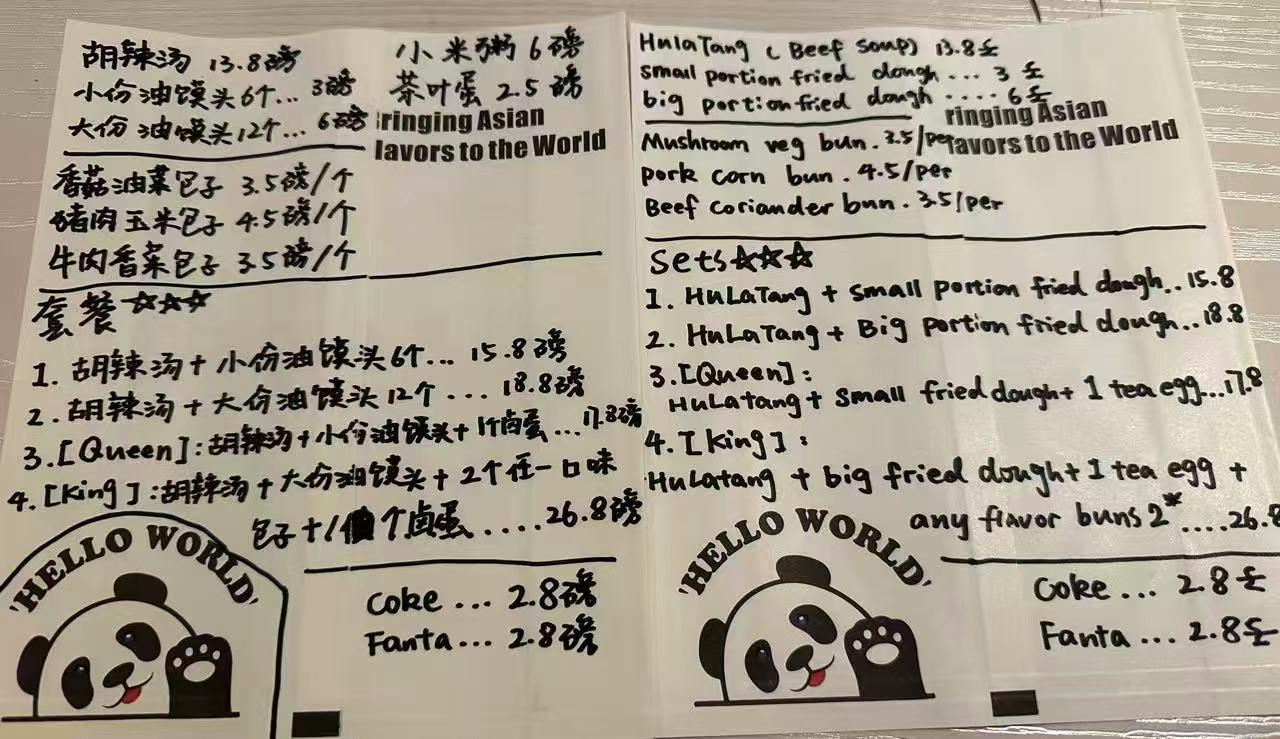 胡辣汤 13.8磅
小份油馍头6个... 3磅
大份油馍头12个... 6磅
小米粥 6磅
茶叶蛋 2.5磅
ringing Asian
lavors to the World
香菇油菜包子 3.5磅/个
猪肉玉米包子 4.5磅/个
牛肉香菜包子 3.5磅/个
套餐☆☆☆
1. 胡辣汤+小份油馍头6个... 15.8磅
2. 胡辣汤+大份油馍头12个... 18.8磅
3.[Queen]:胡辣汤+小份油馍头+1个卤蛋...17.8磅
4.[King]:胡辣汤+大份油馍头+2个任一口味
包子+1个卤蛋....26.8磅
'HELLO WORLD'
Coke... 2.8磅
Fanta... 2.8磅
HulaTang (Beef soup) 13.8£
small portion fried dough... 3£
big portion fried dough.... 6£
ringing Asian
avors to the World
Mushroom veg bun. 3.5/per
pork corn bun. 4.5/per
Beef coriander bun. 3.5/per
Sets☆☆☆
1. HuLaTang + small portion fried dough..15.8
2. HuLaTang + Big portion fried dough..18.8
3.[Queen]:
HuLatang+ small fried dough+ 1 tea egg...17.8
4.[king]:
HuLatang + big fried dough+ 1 tea egg +
any flavor buns 2*....26.8
'HELLO WORLD'
Coke... 2.8£
Fanta... 2.8£